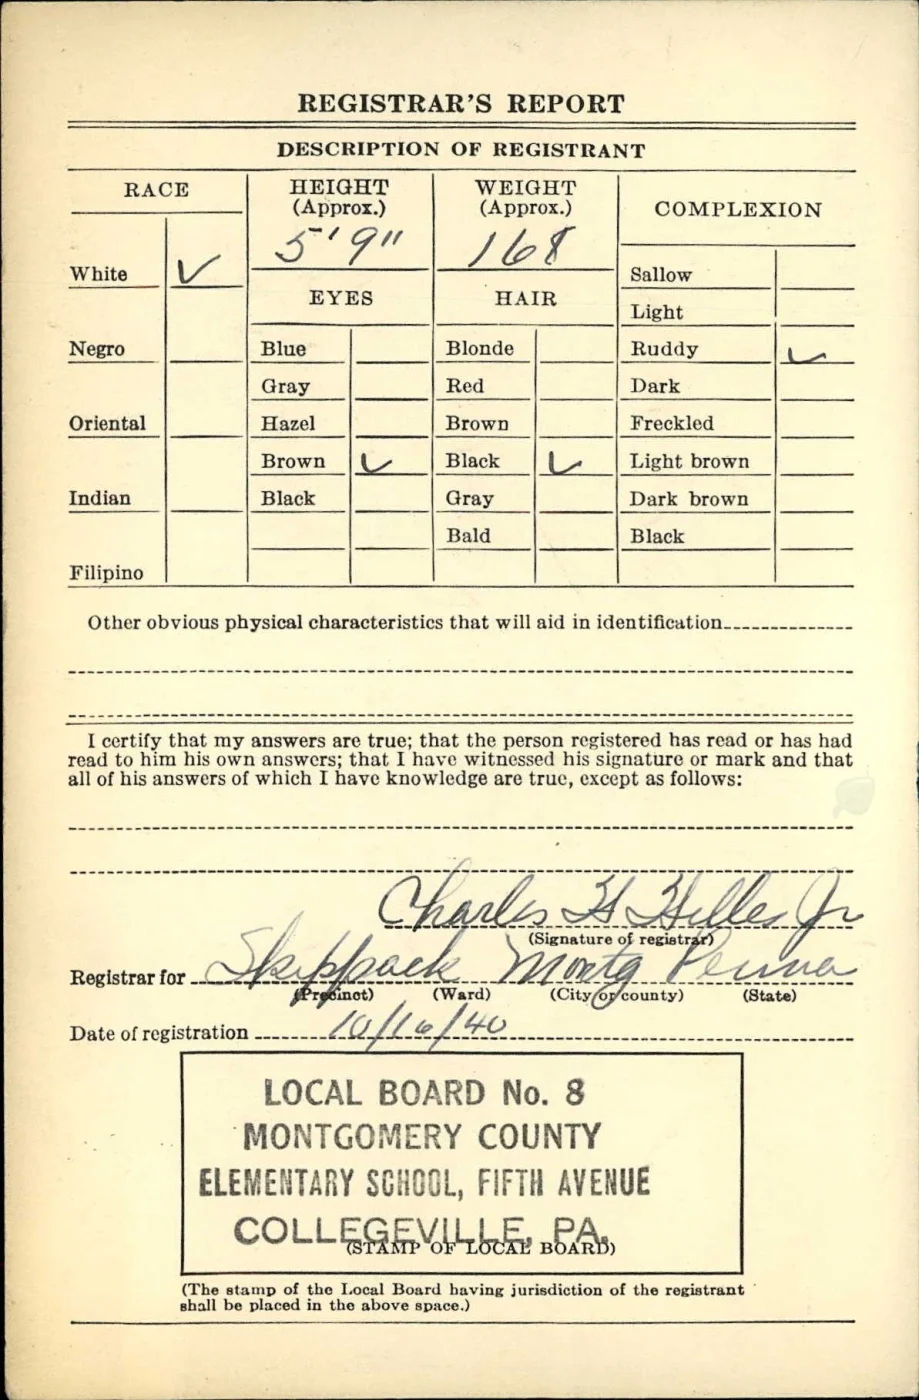 REGISTRAR'S REPORT
DESCRIPTION OF REGISTRANT
RACE
HEIGHT
(Approx.)
WEIGHT
(Approx.)
COMPLEXION
5' 9"
168
White ✓
Sallow
EYES
HAIR
Light
Negro
Blue
Blonde
Ruddy ✓
Gray
Red
Dark
Oriental
Hazel
Brown
Freckled
Brown ✓
Black ✓
Light brown
Indian
Black
Gray
Dark brown
Bald
Black
Filipino
Other obvious physical characteristics that will aid in identification
I certify that my answers are true; that the person registered has read or has had
read to him his own answers; that I have witnessed his signature or mark and that
all of his answers of which I have knowledge are true, except as follows:
Charles H Hilles Jr
(Signature of registrar)
Registrar for Skippack Montg Penna
(Precinct) (Ward) (City or county) (State)
Date of registration 10/16/40
LOCAL BOARD No. 8
MONTGOMERY COUNTY
ELEMENTARY SCHOOL, FIFTH AVENUE
COLLEGEVILLE, PA.
(STAMP OF LOCAL BOARD)
(The stamp of the Local Board having jurisdiction of the registrant
shall be placed in the above space.)